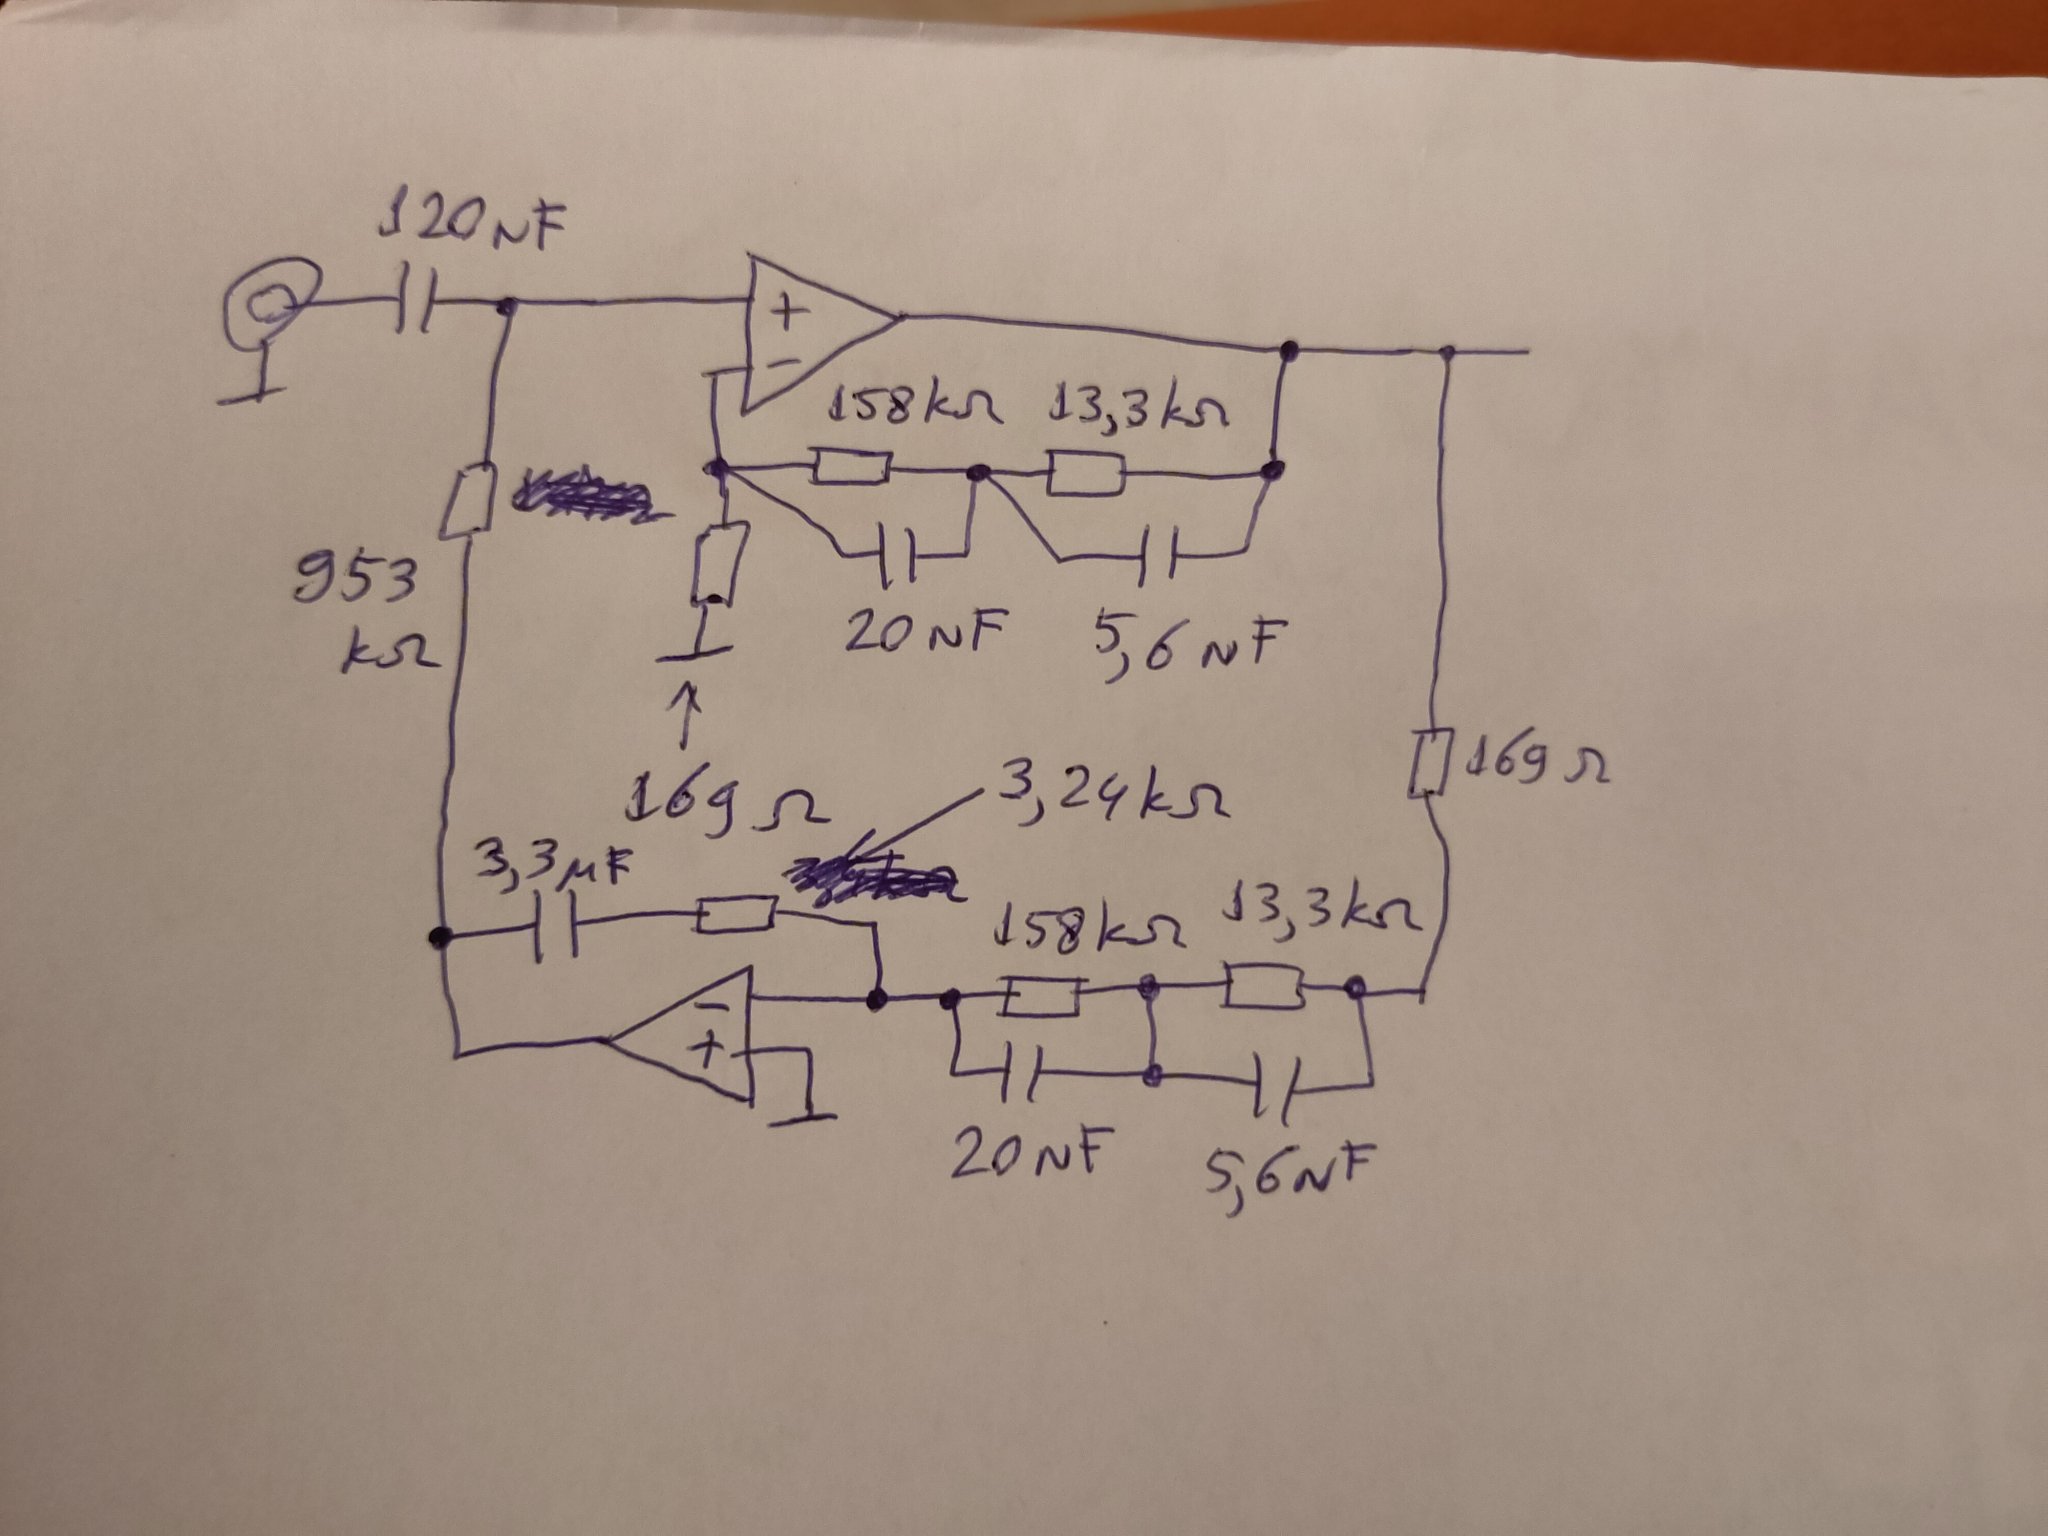 120nF
+
-
158kΩ 13,3kΩ
953
kΩ
20nF 5,6nF
169Ω
169Ω
3,24kΩ
3,3μF
158kΩ 13,3kΩ
-
+
20nF 5,6nF